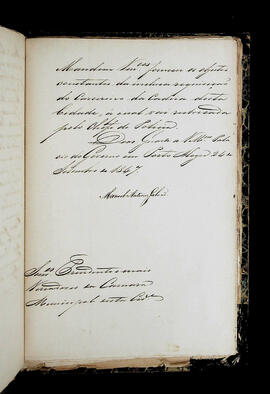 Mandem Vm.ces fornecer os objectos
constantes da inclusa requisição
do Carcereiro da Cadeia desta
Cidade, a qual vai rubricada
pelo Chefe de Policia.
Deos Guarde a Vm.ces Pala-
cio do Governo em Porto Alegre 24 de
Setembro de 1847.
Manoel Antonio Galvão
Sn.res Presidente e mais
Vereadores da Camara
Municipal desta Cid.e